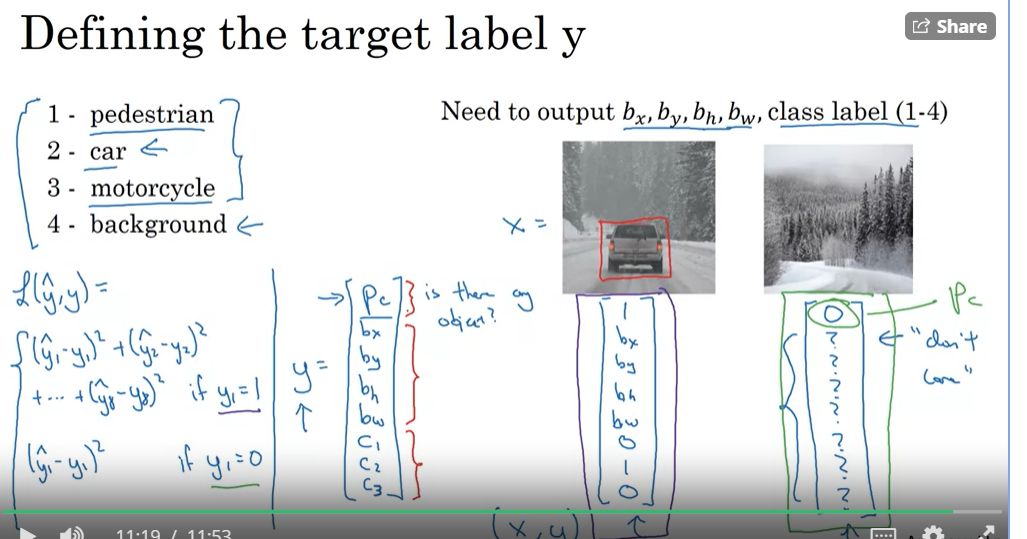 Defining the target label y
Share
1 - pedestrian
2 - car ←
3 - motorcycle
4 - background ←
Need to output bx, by, bh, bw, class label (1-4)
x =
ℒ(ŷ,y) =
(ŷ1-y1)² + (ŷ2-y2)²
+ ... + (ŷ8-y8)² if y1=1
(ŷ1-y1)² if y1=0
y =
→ Pc
bx
by
bh
bw
C1
C2
C3
is there any
object?
1
bx
by
bh
bw
0
1
0
0
?
?
?
?
?
?
?
Pc
← "don't
care"
(x, y)
11:19 / 11:53